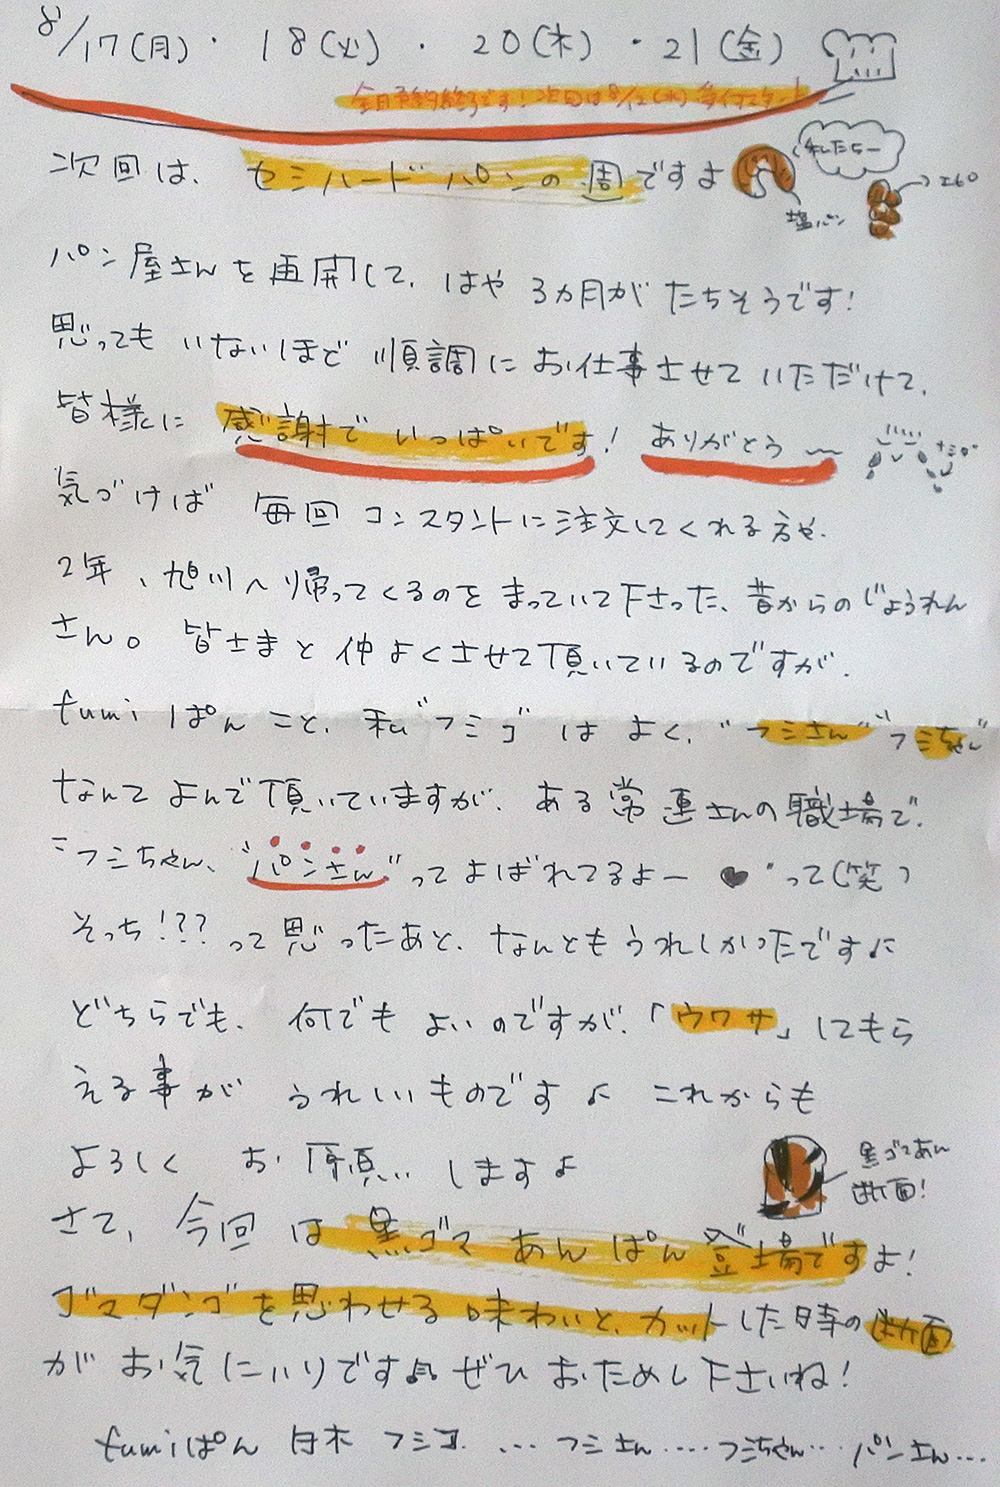 8/17(月)・18(火)・20(木)・21(金)
全日予約終了です!次回は8/12(水)受付スタート
次回は、セミハードパンの週ですよ
私したちー
エピ
塩パン
パン屋さんを再開して、はや3ヵ月がたちそうです!
思ってもいないほど順調にお仕事させていただけて、
皆様に感謝でいっぱいです!ありがとう〜
ナミダ
気づけば毎回コンスタントに注文してくれる方や、
2年、旭川へ帰ってくるのをまっていて下さった、昔からのじょうれん
さん。皆さまと仲よくさせて頂いているのですが、
fumiぱんこと、私"フミゴ"はよく、"フミさん""フミちゃん"
なんてよんで頂いていますが、ある常連さんの職場で、
"フミちゃん、"パンさん"ってよばれてるよー♥"って(笑)
そっち!??って思ったあと、なんともうれしかったです♪
どちらでも、何でもよいのですが、「ウワサ」してもら
える事がうれしいものです♪これからも
よろしくお願いしますよ
黒ゴマあん
断面!
さて、今回は黒ゴマあんぱん登場ですよ!
ゴマダンゴを思わせる味わいと、カットした時の断面
がお気にいりです♫ぜひおためし下さいね!
fumiぱん フミ ...フミさん....フミちゃん...パンさん...